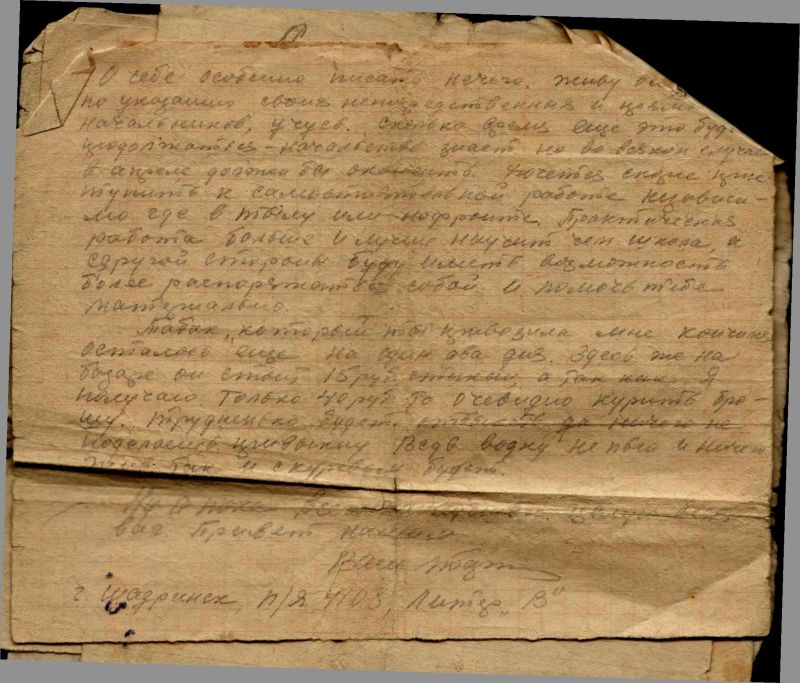 О себе особенно писать нечего. Живу
по указанию своих непосредственных и
начальников, учусь. Сколько время еще это буд
продолжаться - начальство знает но во всяком случае
в апреле должен бы окончить. Хочется скорее прис
тупить к самостоятельной работе независи-
мо где в тылу или на фронте. Практическая
работа больше и лучше научит чем школа, а
с другой стороны буду иметь возможность
более распоряжаться собой и помочь тебе
материально.
Табак, который ты привозила мне кончаю
осталось еще на один два дня. Здесь же на
базаре он стоит 15 руб стакан, а так как я
получаю только 40 руб то очевидно курить бро-
шу. Трудненько будет отвыкать да ничего не
поделаешь привыкну. Ведь водку не пью и ничего
так и с куревом будет.
Ну а пока
вас Привет нашим
Ваш
г. Шадринск, п/я №103, Литер „В"